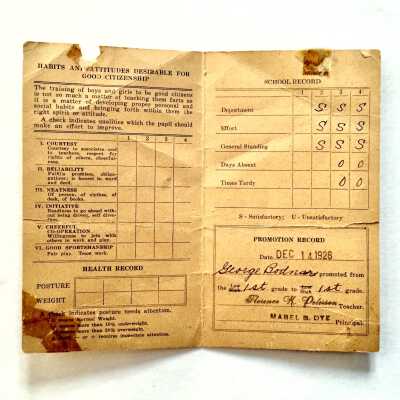 HABITS AND ATTITUDES DESIRABLE FOR
GOOD CITIZENSHIP
The training of boys and girls to be good citizens
is not so much a matter of teaching them facts as
it is a matter of developing proper personal and
social habits and bringing forth within them the
right spirit or attitude.
A check indicates qualities which the pupil should
make an effort to improve.
1 2 3 4
I. COURTESY
Courtesy to associates and
to teachers, respect for
rights of others, cheerful-
ness.
II. RELIABILITY
Fulfils promises, obli-
gations; is honest in word
and deed.
III. NEATNESS
Of person, of clothes, of
desk, of books.
IV. INITIATIVE
Readiness to go ahead with-
out being driven, self direc-
tion.
V. CHEERFUL
CO-OPERATION
Willingness to join with
others in work and play.
VI. GOOD SPORTSMANSHIP
Fair play. Team work.
HEALTH RECORD
POSTURE
WEIGHT
A check indicates posture needs attention.
Normal Weight.
more than 10% underweight.
more than 20% overweight.
or requires immediate attention.
SCHOOL RECORD
1 2 3 4
Department S S S
Effort S S S
General Standing S S S
Days Absent 0 0
Times Tardy 0 0
S - Satisfactory; U - Unsatisfactory
PROMOTION RECORD
Date DEC 14 1926
George Bodnar promoted from
the Low 1st grade to 1st grade.
Florence K. Teacher.
MABEL B. DYE
Principal.